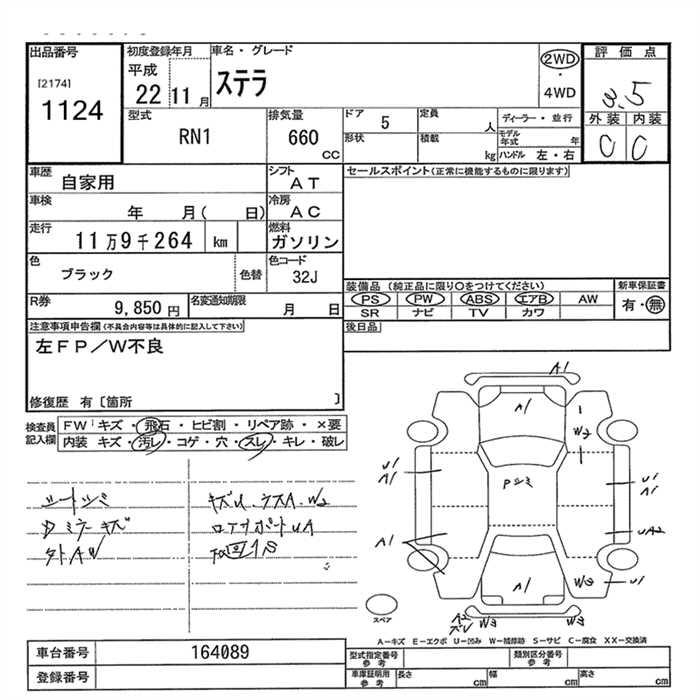 出品番号
[2174]
1124
初度登録年月
平成
22
11月
車名・グレード
ステラ
2WD
・
4WD
評価点
3.5
外装
内装
C
C
型式
RN1
排気量
660
CC
ドア
5
形状
定員
人
積載
kg
ディーラー・並行
モデル
年式
年
ハンドル 左・右
車歴
自家用
シフト
AT
車検
年 月( 日)
冷房
AC
走行
11万9千264 km
燃料
ガソリン
色
ブラック
色替
色コード
32J
R券
9,850 円
名変通知期限
月 日
セールスポイント(正常に機能するものに限ります)
装備品 (純正品に限り○をつけてください)
PS PW ABS エアB AW
SR ナビ TV カワ
新車保証書
有・無
後日品
注意事項申告欄(不具合内容等は具体的に記入して下さい)
左FP/W不良
修復歴 有〔箇所 〕
検査員
記入欄
FW キズ・飛石・ヒビ割・リペア跡・×要
内装 キズ・汚レ・コゲ・穴・スレ・キレ・破レ
シートシミ
ミラーキズ
外AW
A1
A1
W2
Pシミ
U1
A1
U1
A1
UA2
A1
A1
W2
U1
A2
W2
W2
スペア
A-キズ E-エクボ U-凹み W-補修跡 S-サビ C-腐食 XX-交換済
車台番号
164089
登録番号
型式指定番号
参考
類別区分番号
参考
車庫証明用
参考
長さ cm
幅 cm
高さ cm